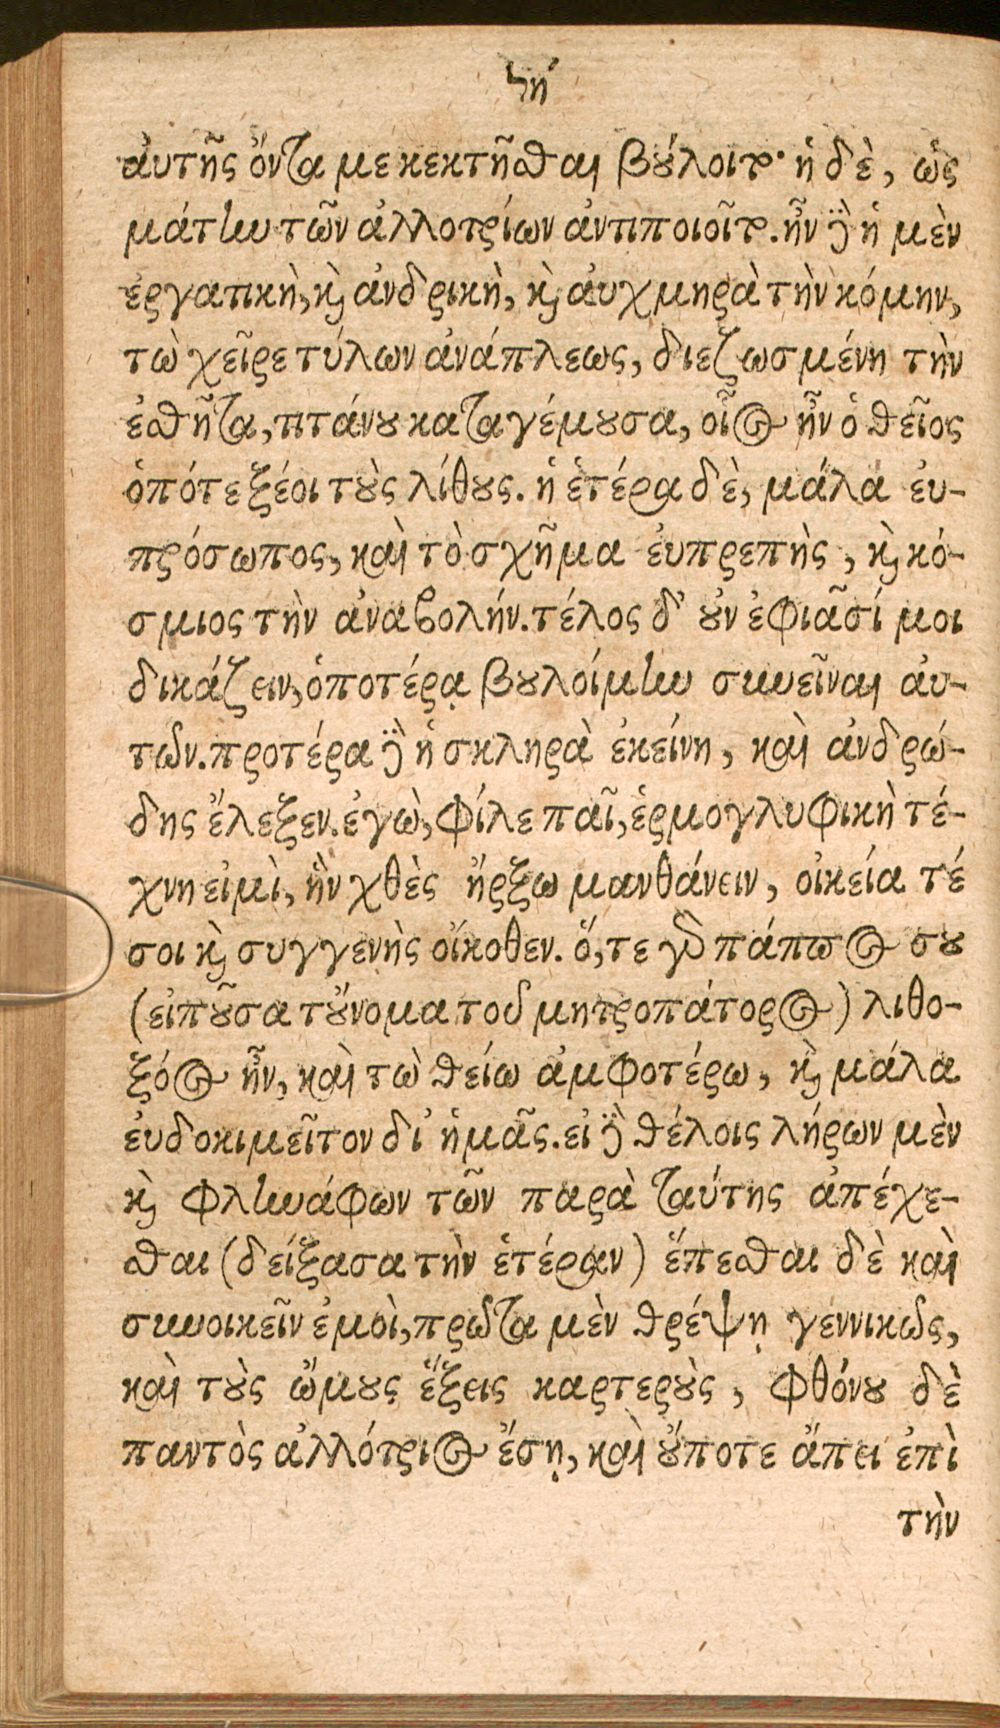 ϟη΄
ἀυτῆς ὄντα με κεκτῆσθαι βούλοιτο· ἡ δὲ, ὡς
μάτην τῶν ἀλλοτρίων ἀντιποιοῖτο. ἦν δὲ ἡ μὲν
ἐργατικὴ, καὶ ἀνδρικὴ, καὶ ἀυχμηρὰ τὴν κόμην,
τὼ χεῖρε τύλων ἀνάπλεως, διεζωσμένη τὴν
ἐσθῆτα, τιτάνου καταγέμουσα, οἷος ἦν ὁ θεῖος
ὁπότε ξέοι τοὺς λίθους. ἡ ἑτέρα δὲ, μάλα ἐυ-
πρόσωπος, καὶ τὸ σχῆμα ἐυπρεπὴς, καὶ κό-
σμιος τὴν ἀναβολήν. τέλος δ' οὖν ἐφιᾶσί μοι
δικάζειν, ὁποτέρᾳ βουλοίμην συνεῖναι ἀυ-
τῶν. προτέρα δὲ ἡ σκληρὰ ἐκείνη, καὶ ἀνδρώ-
δης ἔλεξεν. ἐγὼ, φίλε παῖ, ἑρμογλυφικὴ τέ-
χνη εἰμὶ, ἣν χθὲς ἤρξω μανθάνειν, οἰκεία τέ
σοι καὶ συγγενὴς οἴκοθεν. ὅ, τε γὰρ πάππος σου
(εἰποῦσα τοὔνομα τοῦ μητροπάτορος) λιθο-
ξόος ἦν, καὶ τὼ θείω ἀμφοτέρω, καὶ μάλα
ἐυδοκιμεῖτον δι' ἡμᾶς. εἰ δὲ θέλοις λήρων μὲν
καὶ φληνάφων τῶν παρὰ ταύτης ἀπέχε-
σθαι (δείξασα τὴν ἑτέραν) ἕπεσθαι δὲ καὶ
συνοικεῖν ἐμοὶ, πρῶτα μὲν θρέψῃ γεννικῶς,
καὶ τοὺς ὤμους ἕξεις καρτεροὺς, φθόνου δὲ
παντὸς ἀλλότριος ἔσῃ, καὶ οὔποτε ἄπει ἐπὶ
τὴν